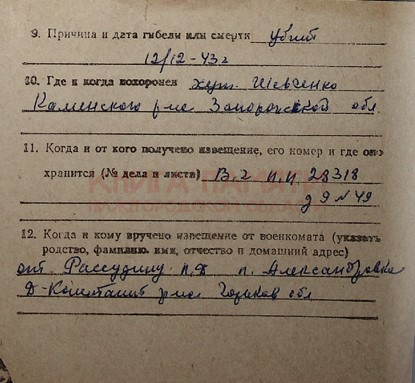 9. Причина и дата гибели или смерти убит
12/12-43 г
10. Где и когда похоронен хут. Шевченко
Каменского р-на Запорожской обл
11. Когда и от кого получено извещение, его номер и где оно
хранится (№ дела и листа) В.ч п.п 28318
д 9 № 49
КНИГА ПАМЯТИ
НИЖЕГОРОДСКОЙ ОБЛАСТИ
12. Когда и кому вручено извещение от военкомата (указать
родство, фамилию, имя, отчество и домашний адрес)
от. Рассудину п. Александровка
Д-Константин р-на Горьков обл